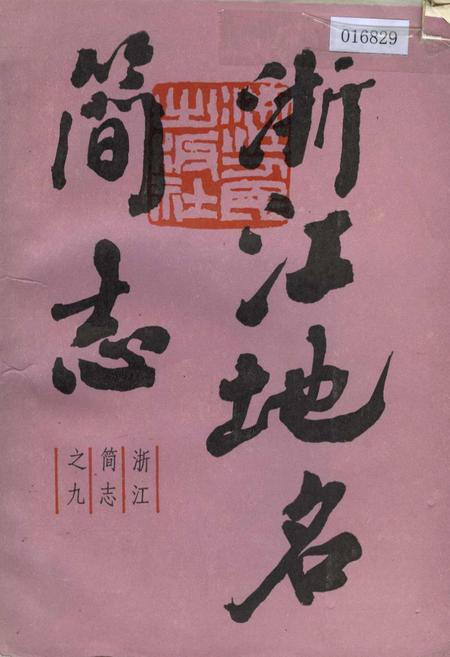 016829
浙江地名
简志
浙江人民
出版社
浙江
简志
之九